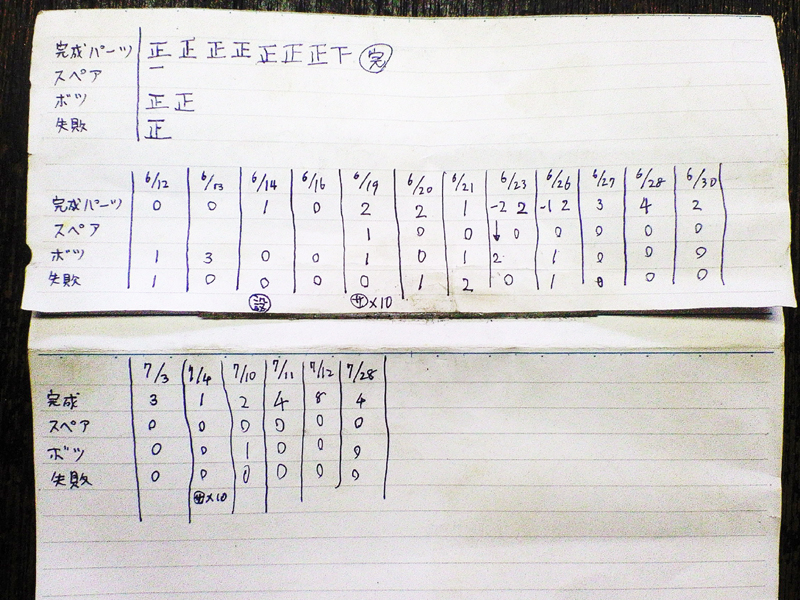 完成パーツ 正 正 正 正 正 正 正 下 完
スペア 一
ボツ 正 正
失敗 正
6/12 6/13 6/14 6/16 6/19 6/20 6/21 6/23 6/26 6/27 6/28 6/30
完成パーツ 0 0 1 0 2 2 1 -2 2 -1 2 3 4 2
スペア 1 0 0 ↓ 0 0 0 0 0
ボツ 1 3 0 0 1 0 1 2 1 0 0 0
失敗 1 0 0 0 0 1 2 0 1 0 0 0
設 サ×10
7/3 7/4 7/10 7/11 7/12 7/28
完成 3 1 2 4 8 4
スペア 0 0 0 0 0 0
ボツ 0 0 1 0 0 0
失敗 0 0 0 0 0 0
サ×10